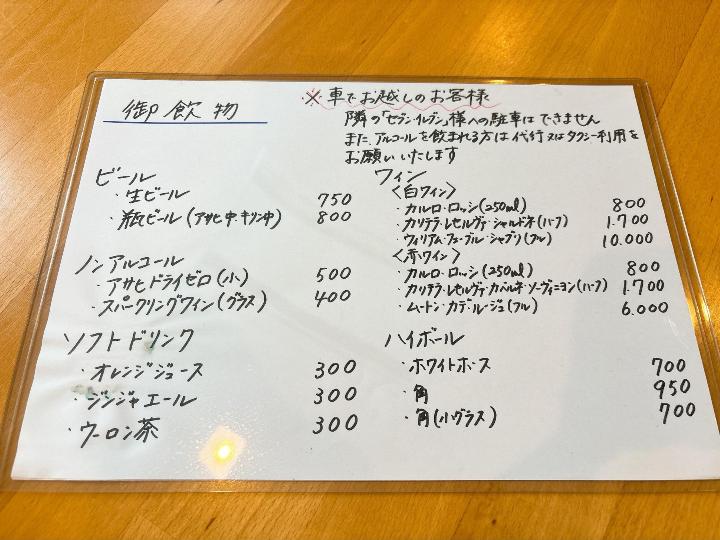 御飲物
※車でお越しのお客様
隣の「セブン-イレブン」様への駐車はできません
また、アルコールを飲まれる方は代行又はタクシー利用を
お願いいたします
ビール
・生ビール 750
・瓶ビール(アサヒ中・キリン中) 800
ノンアルコール
・アサヒドライゼロ(小) 500
・スパークリングワイン(グラス) 400
ソフトドリンク
・オレンジジュース 300
・ジンジャエール 300
・ウーロン茶 300
ワイン
<白ワイン>
・カルロ・ロッシ(250ml) 800
・カリテラ・レセルヴァ・シャルドネ(ハーフ) 1.700
・ウィリアム・フェーブル・シャブリ(フル) 10.000
<赤ワイン>
・カルロ・ロッシ(250ml) 800
・カリテラ・レセルヴァ・カベルネ・ソーヴィニヨン(ハーフ) 1.700
・ムートン・カデ・ルージュ(フル) 6.000
ハイボール
・ホワイトホース 700
・角 950
・角(小グラス) 700